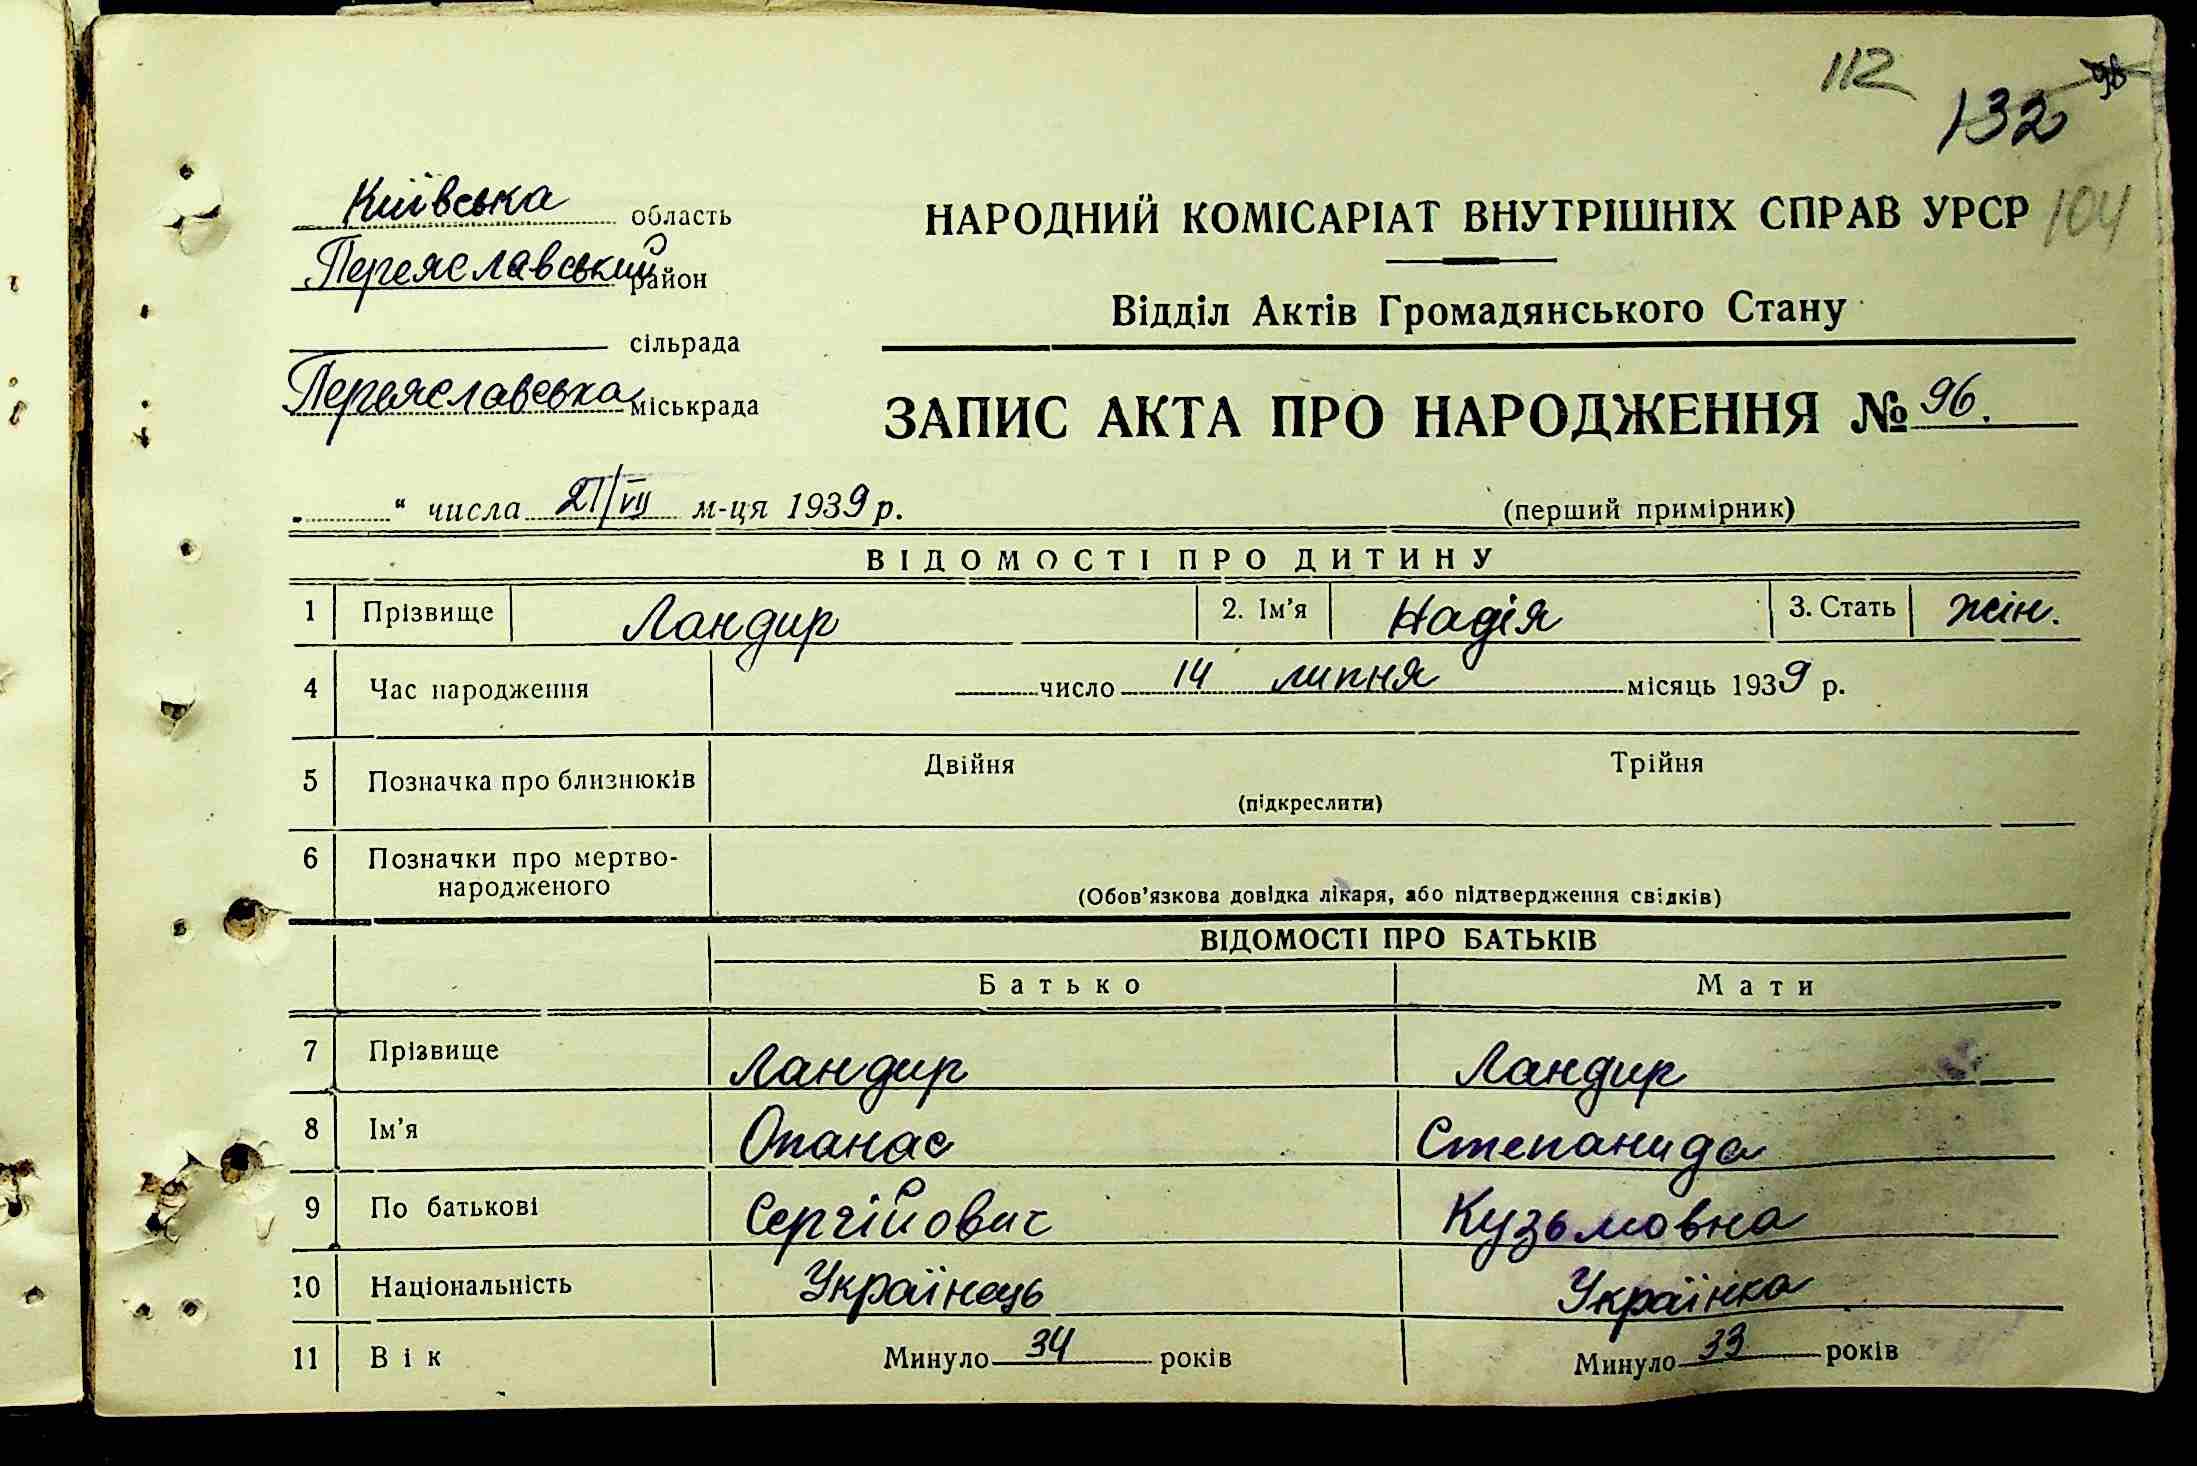 112
132
Київська область
104
НАРОДНИЙ КОМІСАРІАТ ВНУТРІШНІХ СПРАВ УРСР
Переяславський район
Відділ Актів Громадянського Стану
сільрада
Переяславська міськрада
ЗАПИС АКТА ПРО НАРОДЖЕННЯ № 96.
„ “ числа 21/VII м-ця 1939 р.
(перший примірник)
ВІДОМОСТІ ПРО ДИТИНУ
1 Прізвище Ландир 2. Ім’я Надія 3. Стать жін.
4 Час народження число 14 липня місяць 1939 р.
5 Позначка про близнюків Двійня Трійня
(підкреслити)
6 Позначки про мертво-
народженого
(Обов’язкова довідка лікаря, або підтвердження свідків)
ВІДОМОСТІ ПРО БАТЬКІВ
Батько Мати
7 Прізвище Ландир Ландир
8 Ім’я Опанас Степанида
9 По батькові Сергійович Кузьмовна
10 Національність Українець Українка
11 Вік Минуло 34 років Минуло 33 років